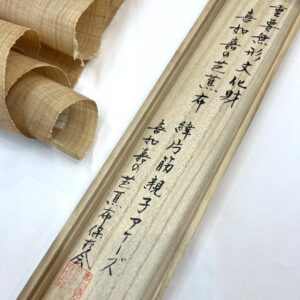 重要無形文化財
喜如嘉の芭蕉布
緯片筋親子アケーズ
喜如嘉の芭蕉布保存会